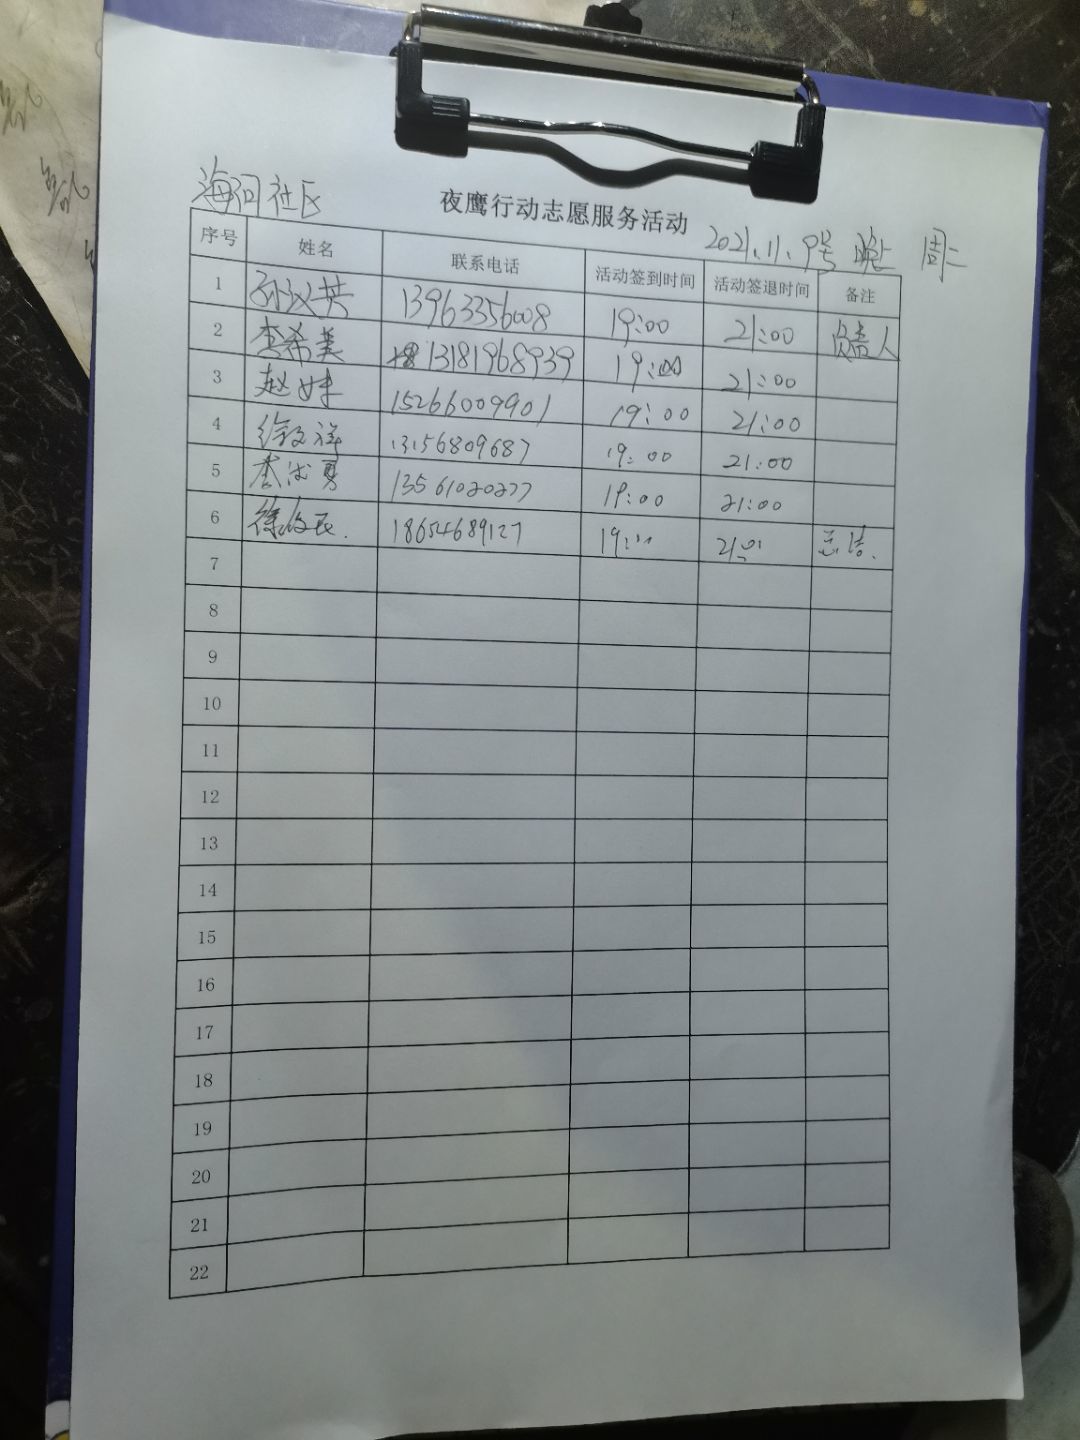 海河社区
夜鹰行动志愿服务活动
2021.11.9号 晚上 周二
序号 姓名 联系电话 活动签到时间 活动签退时间 备注
1 孙汉芳 13963356008 19:00 21:00 负责人
2 李希美 13181968939 19:00 21:00
3 赵 15266009901 19:00 21:00
4 徐文祥 13156809687 19:00 21:00
5 李 勇 13561020277 19:00 21:00
6 徐 民. 18654689127 19:00 21:00 总结.
7
8
9
10
11
12
13
14
15
16
17
18
19
20
21
22